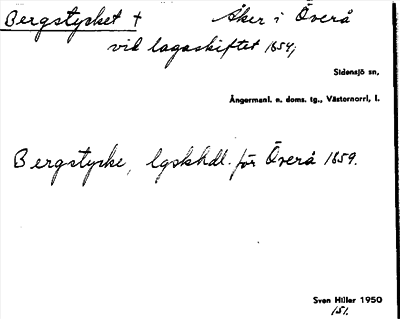 Bergstycket † Åker i Överå
vid lagaskiftet 1859;
Sidensjö sn,
Ångermanl. n. doms. tg., Västernorrl, l.
Bergstycke, lgskhdl. för Överå 1859.
Sven Hiller 1950
151.